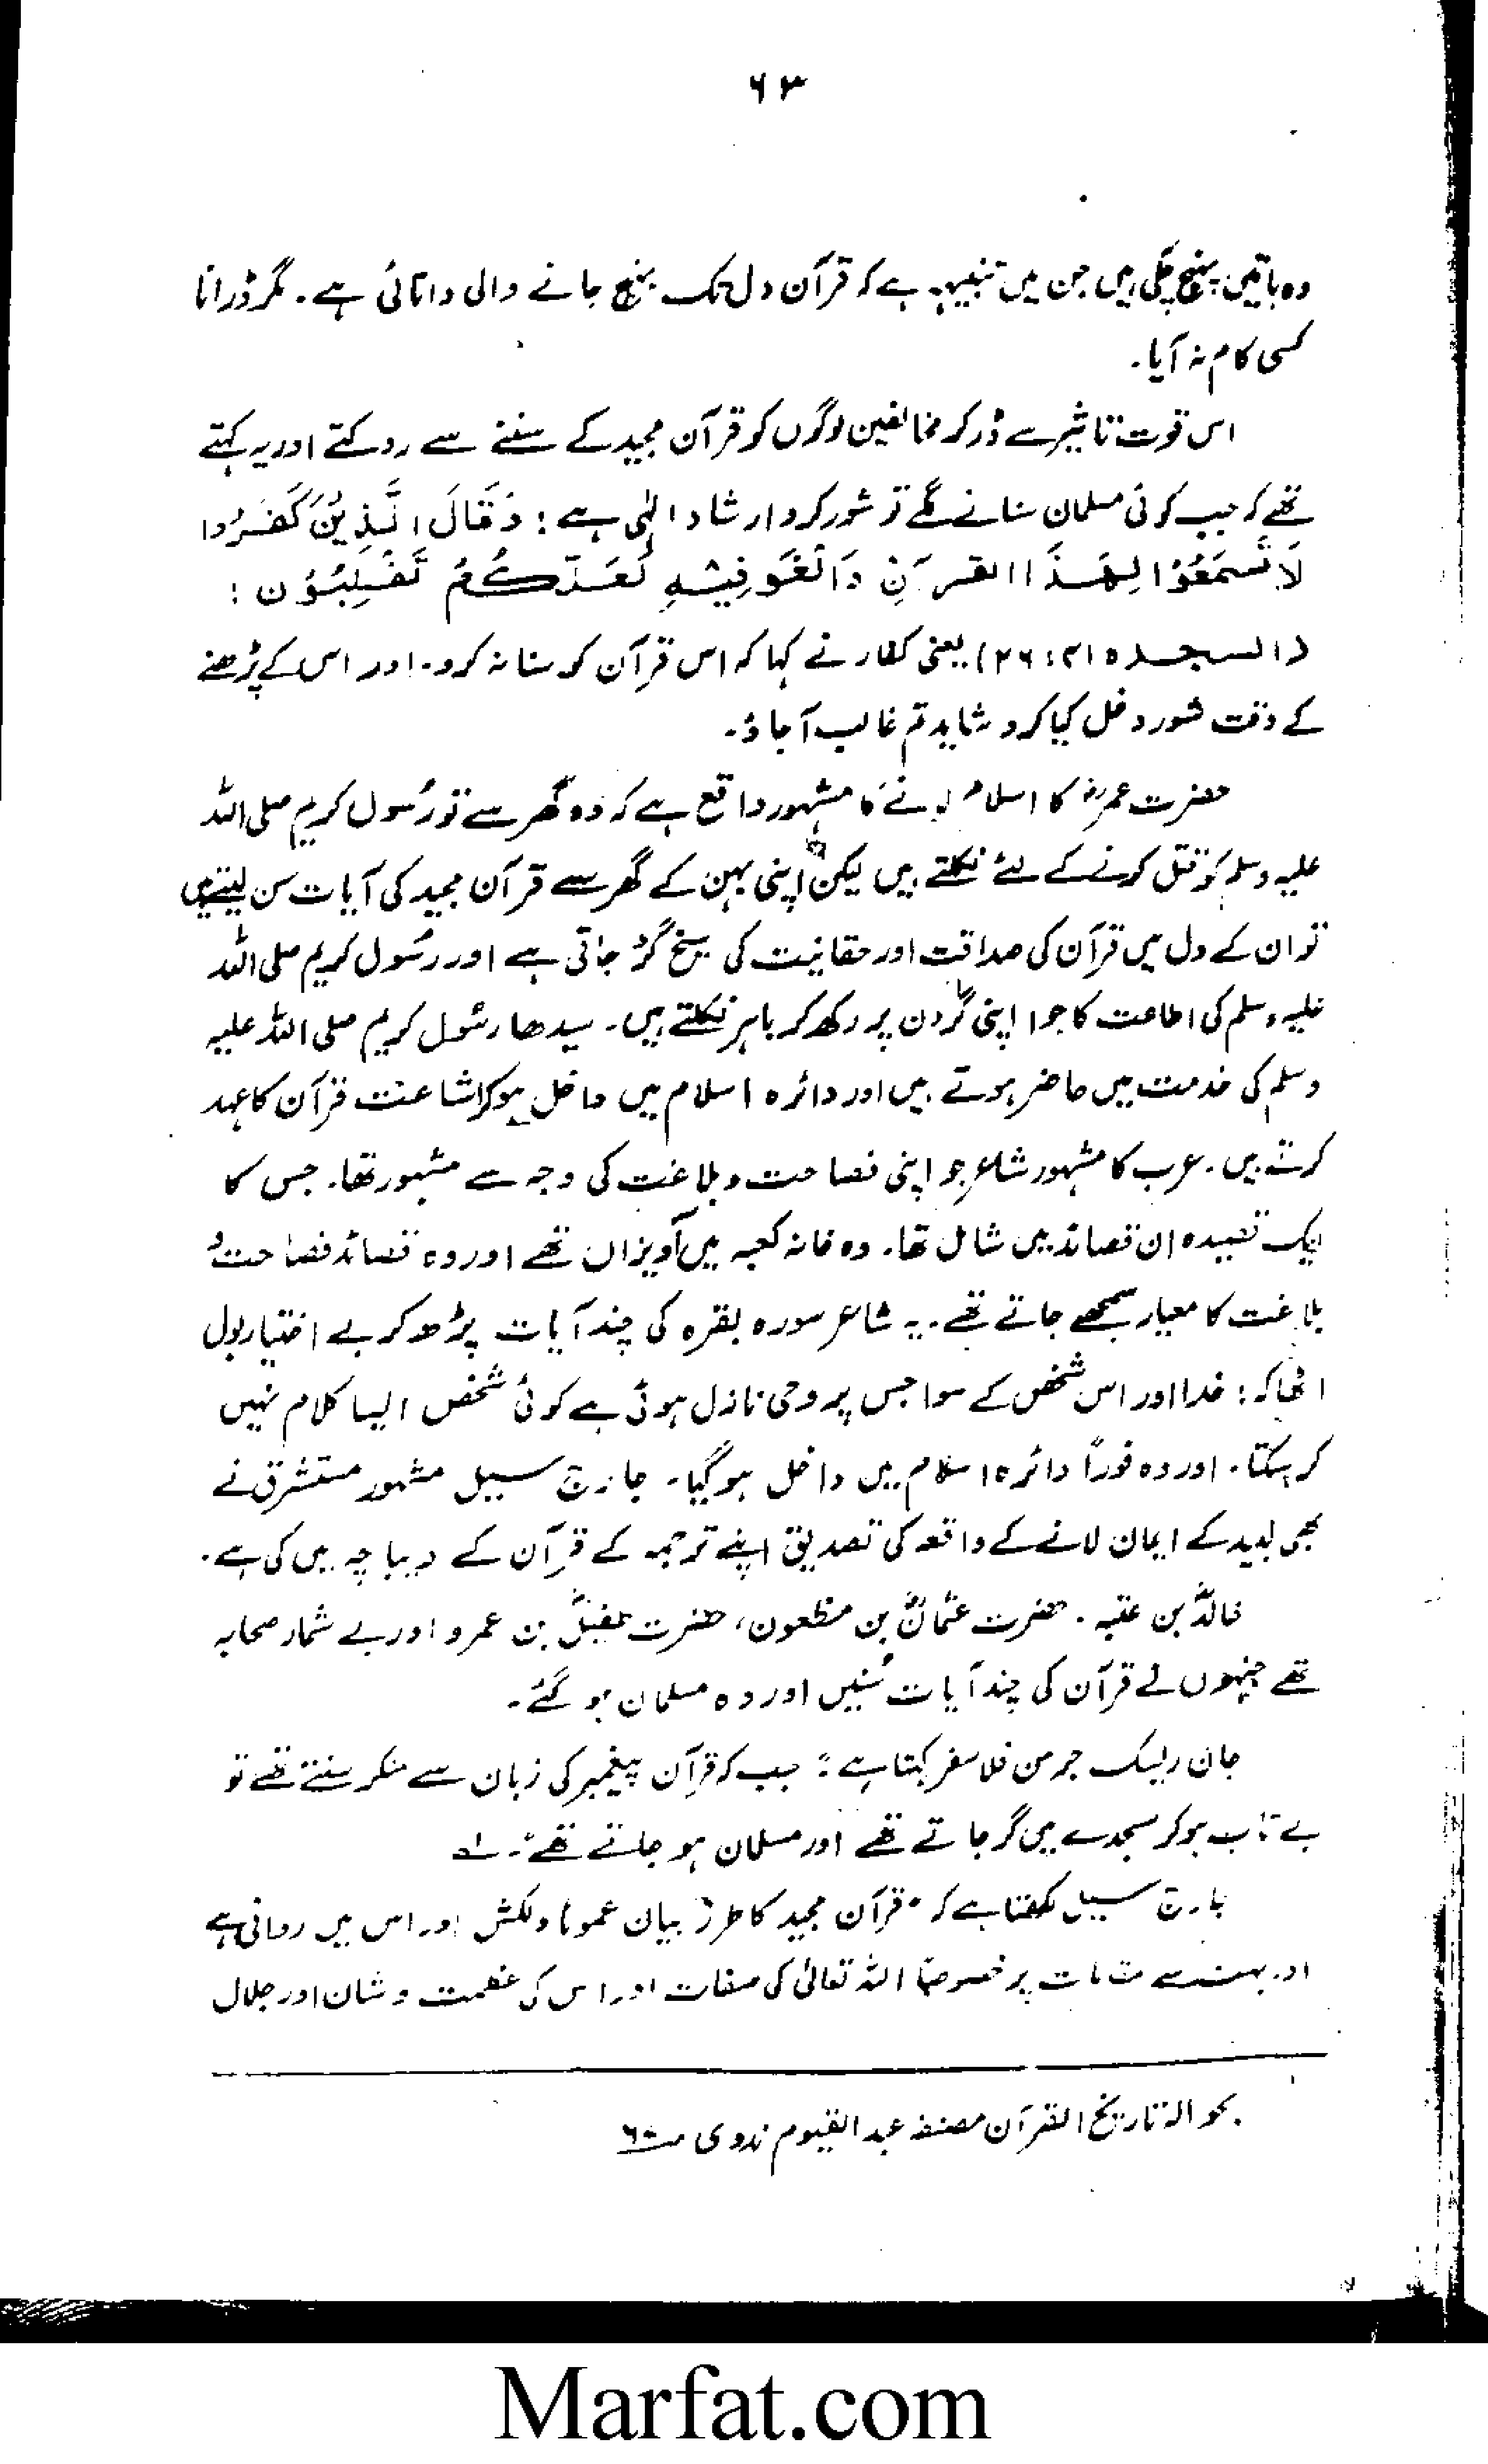 ۶۳
وہ باتیں پہنچ چکی ہیں جن میں تنبیہہ ہے کہ قرآن دل تک پہنچ جانے والی دانائی ہے۔ مگر ڈرانا
کسی کام نہ آیا۔
اس قوت تاثیر سے ڈر کر مخالفین لوگوں کو قرآن مجید کے سننے سے روکتے اور یہ کہتے
تھے کہ جب کوئی مسلمان سنانے لگے تو شور کرو ارشاد الٰہی ہے : وَقَالَ الَّذِیْنَ کَفَرُوا
لَا تَسْمَعُوْا لِهٰذَا القرآنِ وَالْغَوْ فِیْهِ لَعَلَّکُمْ تَغْلِبُوْن :
(السجدہ ۴۱ : ۲۶) یعنی کفار نے کہا کہ اس قرآن کو سنا نہ کرو۔ اور اس کے پڑھنے
کے وقت شور و غل کیا کرو شاید تم غالب آجاؤ۔
حضرت عمرؓ کا اسلام لانے کا مشہور واقع ہے کہ وہ گھر سے تو رسُول کریم صلی اللہ
علیہ وسلم کو قتل کرنے کے لئے نکلتے ہیں لیکن اپنی بہن کے گھر سے قرآن مجید کی آیات سن لیتے ہیں
تو ان کے دل میں قرآن کی صداقت اور حقانیت کی میخ گڑ جاتی ہے اور رسُول کریم صلی اللہ
علیہ وسلم کی اطاعت کا جوا اپنی گردن پر رکھ کر باہر نکلتے ہیں۔ سیدھا رسُول کریم صلی اللہ علیہ
وسلم کی خدمت میں حاضر ہوتے ہیں اور دائرہ اسلام میں داخل ہو کر اشاعت قرآن کا عہد
کرتے ہیں۔ عرب کا مشہور شاعر جو اپنی فصاحت و بلاغت کی وجہ سے مشہور تھا۔ جس کا
ایک قصیدہ ان قصائد میں شامل تھا۔ وہ خانہ کعبہ میں آویزاں تھے اور وہ قصائد فصاحت و
بلاغت کا معیار سمجھے جاتے تھے۔ یہ شاعر سورہ بقرہ کی چند آیات پڑھ کر بے اختیار بول
اٹھا کہ : خدا اور اس شخص کے سوا جس پر وحی نازل ہوئی ہے کوئی شخص ایسا کلام نہیں
کر سکتا۔ اور وہ فوراً دائرہ اسلام میں داخل ہو گیا۔ جارج سیل مشہور مستشرق نے
بھی لبید کے ایمان لانے کے واقعہ کی تصدیق اپنے ترجمہ کے قرآن کے دیباچہ میں کی ہے۔
خالدؓ بن عقبہ۔ حضرت عثمانؓ بن مظعون، حضرت طفیلؓ بن عمرو اور بے شمار صحابہ
تھے جنہوں نے قرآن کی چند آیات سُنیں اور وہ مسلمان ہو گئے۔
جان ریسک جرمن فلاسفر کہتا ہے : جب کہ قرآن پیغمبر کی زبان سے منکر سنتے تھے تو
بے تاب ہو کر سجدے میں گر جاتے تھے اور مسلمان ہو جاتے تھے" ۔ ؎۱
جارج سیل لکھتا ہے کہ " قرآن مجید کا طرز بیان عموماً دلکش اور اس میں روانی ہے
اور بہت سے مقامات پر خصوصاً اللہ تعالیٰ کی صفات اور اس کی عظمت و شان اور جلال
بحوالہ تاریخ القرآن مصنفہ عبدالقیوم ندوی
Marfat.com